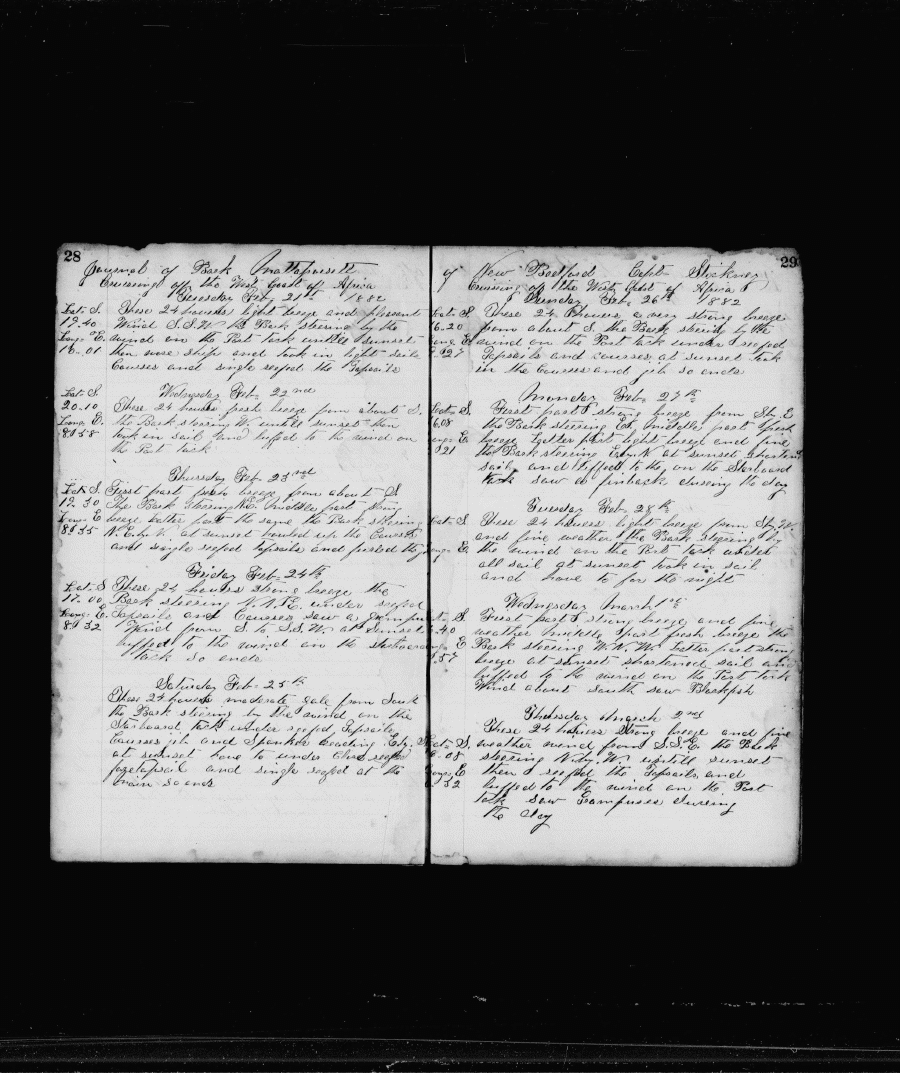 28
Journal of Bark Mattapoisett
Cruising off the West Coast of Africa
Tuesday Feb 21st 1882
Lat S. These 24 hours light breeze and pleasant
19-40 Wind S.S.W. the Bark steering by the
Long E. wind on the Port tack untill sunset
10-01 then wore ship and took in light sails
Courses and single reefed the Topsails
Wednesday Feb 22nd
Lat S.
20-10 These 24 hours fresh breeze from about S.
Long E. the Bark steering W. untill sunset then
8-58 took in sail and luffed to the wind on
the Port tack
Thursday Feb 23rd
Lat S. First part fresh breeze from about S
19-30 The Bark steering middle part strong
Long E breeze latter part the same the Bark steering
8-35 N.E.by N. at sunset hauled up the Courses
and single reefed topsails and furled the jib
Friday Feb 24th
Lat S These 24 hours strong breeze the
17-00 Bark steering N.N.E. under reefed
Long E. Topsails and Courses saw a
8-32 Wind from S. to S.S.W. at Sunset
luffed to the wind on the starboard
tack so ends
Saturday Feb 25th
These 24 hours moderate gale from South
the Bark steering by the wind on the
Starboard tack under reefed Topsails
Courses jib and Spanker heading E.by S.
at sunset hove to under close reefed
foretopsail and single reefed at the
main so ends
29
of New Bedford Capt Stickney
Cruising off the West Coast of Africa
Sunday Feb 26th 1882
Lat S. These 24 hours a very strong breeze
16-20 from about S. the Bark steering by the
Long E wind on the Port tack under reefed
Topsails and courses at sunset took
in the Courses and jib so ends
Monday Feb 27th
Lat S. First part strong breeze from S.by E
the Bark steering middle part fresh
Long E breeze latter part light breeze and fine
the Bark steering E.by N. at sunset shortened
sail and luffed to the on the Starboard
tack saw a finback during the day
Tuesday Feb 28th
Lat S These 24 hours light breeze from S.by W.
and fine weather the Bark steering by
Long E. the wind on the Port tack under
all sail at sunset took in sail
and hove to for the night
Wednesday March 1st
Lat S. First part strong breeze and fine
40 weather middle part fresh breeze the
E Bark steering W.N.W. latter part strong
57 breeze at sunset shortened sail and
luffed to the wind on the Port tack
Wind about South saw Blackfish
Thursday March 2nd
These 24 hours Strong breeze and fine
Lat S. weather wind from S.S.E. the Bark
08 steering N.by.W untill sunset
Long E then reefed the Topsails and
52 luffed to the wind on the Port
tack saw Grampuses during
the day